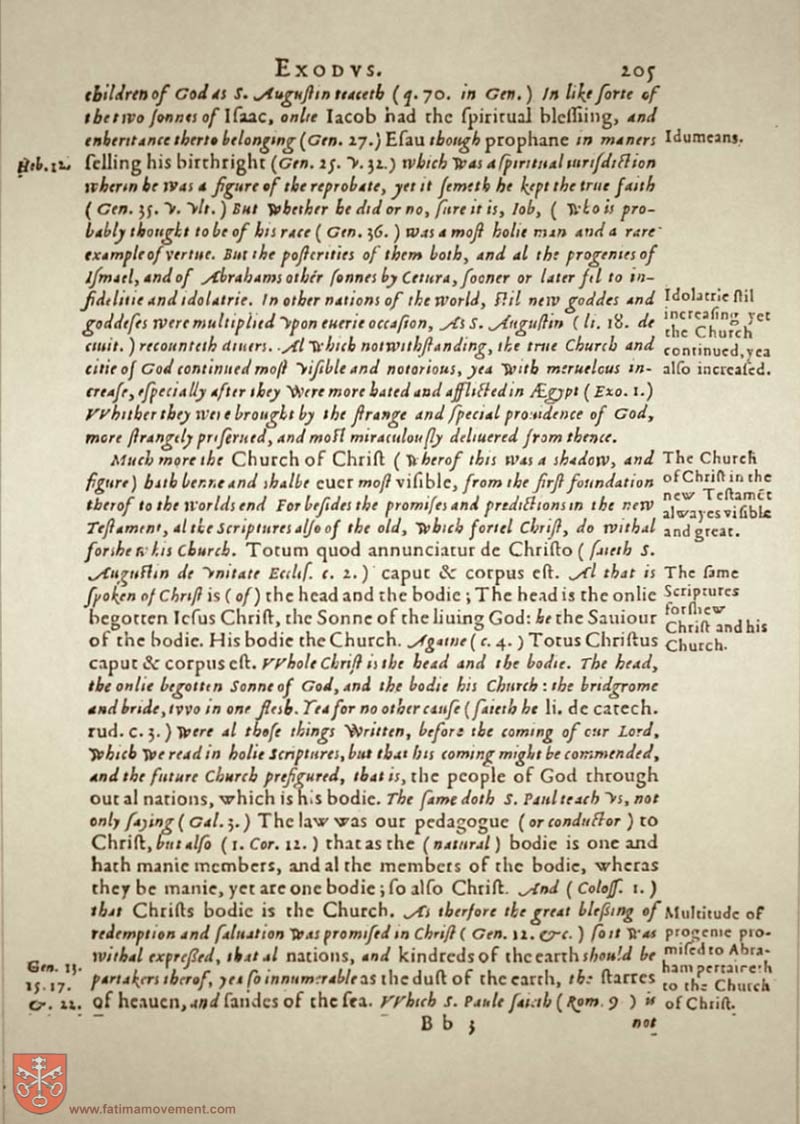 EXODVS. 205
children of God as S. Augustin teaceth (q. 70. in Gen.) In like sorte of
the two sonnes of Isaac, onlie Iacob had the spiritual blessiing, and
enheritance therto belonging (Gen. 27.) Esau though prophane in maners
Idumeans.
Heb. 12.
selling his birthright (Gen. 25. v. 32.) which was a spiritual iurisdiction
wherin he was a figure of the reprobate, yet it semeth he kept the true faith
(Gen. 35. v. vlt.) But whether he did or no, sure it is, Iob, (who is pro-
bably thought to be of his race (Gen. 36.) was a most holie man and a rare
example of vertue. But the posterities of them both, and al the progenies of
Ismael, and of Abrahams other sonnes by Cetura, sooner or later fel to in-
fidelitie and idolatrie. In other nations of the world, stil new goddes and
goddeses were multiplied vpon euerie occasion, As S. Augustin (li. 18. de
ciuit.) recounteth diuers. Al which notwithstanding, the true Church and
citie of God continued most visible and notorious, yea with meruelous in-
crease, especially after they were more hated and afflicted in Ægypt (Exo. 1.)
Idolatrie stil
increasing yet
the Church
continued, yea
also increased.
VVhither they were brought by the strange and special prouidence of God,
more strangely preserued, and most miraculously deliuered from thence.
Much more the Church of Christ (wherof this was a shadow, and
figure) hath benne and shalbe euer most visible, from the first foundation
therof to the worlds end For besides the promises and predictions in the new
Testament, al the Scriptures also of the old, which fortel Christ, do withal
forshew his Church. Totum quod annunciatur de Christo (saieth S.
The Church
of Christ in the
new Testamēt
alwayes visible
and great.
Augustin de vnitate Eccles. c. 2.) caput & corpus est. Al that is
spoken of Christ is (of) the head and the bodie; The head is the onlie
begotten Iesus Christ, the Sonne of the liuing God: he the Sauiour
of the bodie. His bodie the Church. Againe (c. 4.) Totus Christus
The same
Scriptures
forshew
Christ and his
Church.
caput & corpus est. VVhole Christ is the head and the bodie. The head,
the onlie begotten Sonne of God, and the bodie his Church: the bridgrome
and bride, tvvo in one flesh. Yea for no other cause (saieth he li. de catech.
rud. c. 3.) were al those things written, before the coming of our Lord,
which we read in holie Scriptures, but that his coming might be commended,
and the future Church prefigured, that is, the people of God through
out al nations, which is his bodie. The same doth S. Paul teach vs, not
only saying (Gal. 3.) The law was our pedagogue (or conductor) to
Christ, but also (1. Cor. 12.) that as the (natural) bodie is one and
hath manie members, and al the members of the bodie, wheras
they be manie, yet are one bodie; so also Christ. And (Coloss. 1.)
that Christs bodie is the Church. As therfore the great blessing of
redemption and saluation was promised in Christ (Gen. 12. &c.) so it was
withal expressed, that al nations, and kindreds of the earth should be
partakers therof, yea so innumerable as the dust of the earth, the starres
of heauen, and sandes of the sea. VVhich S. Paule saieth (Rom. 9) is
Multitude of
progenie pro-
mised to Abra-
ham pertaineth
to the Church
of Christ.
Gen. 13.
15. 17.
&. 22.
Bb 3 not
www.fatimamovement.com